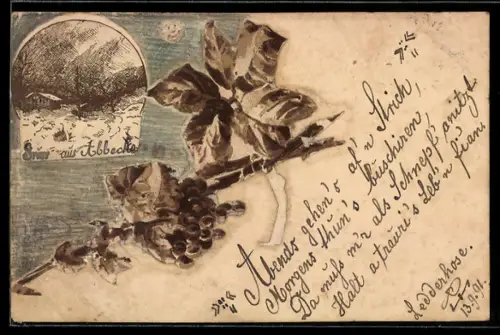 aus Abbecke
Abends gehen's af'n Strich,
Morgens thun's buschiren,
Da muß m'r als Schnepf' anitzt
Halt a trauri's Leb'n fiari
Ledderhose.
13.9.91.